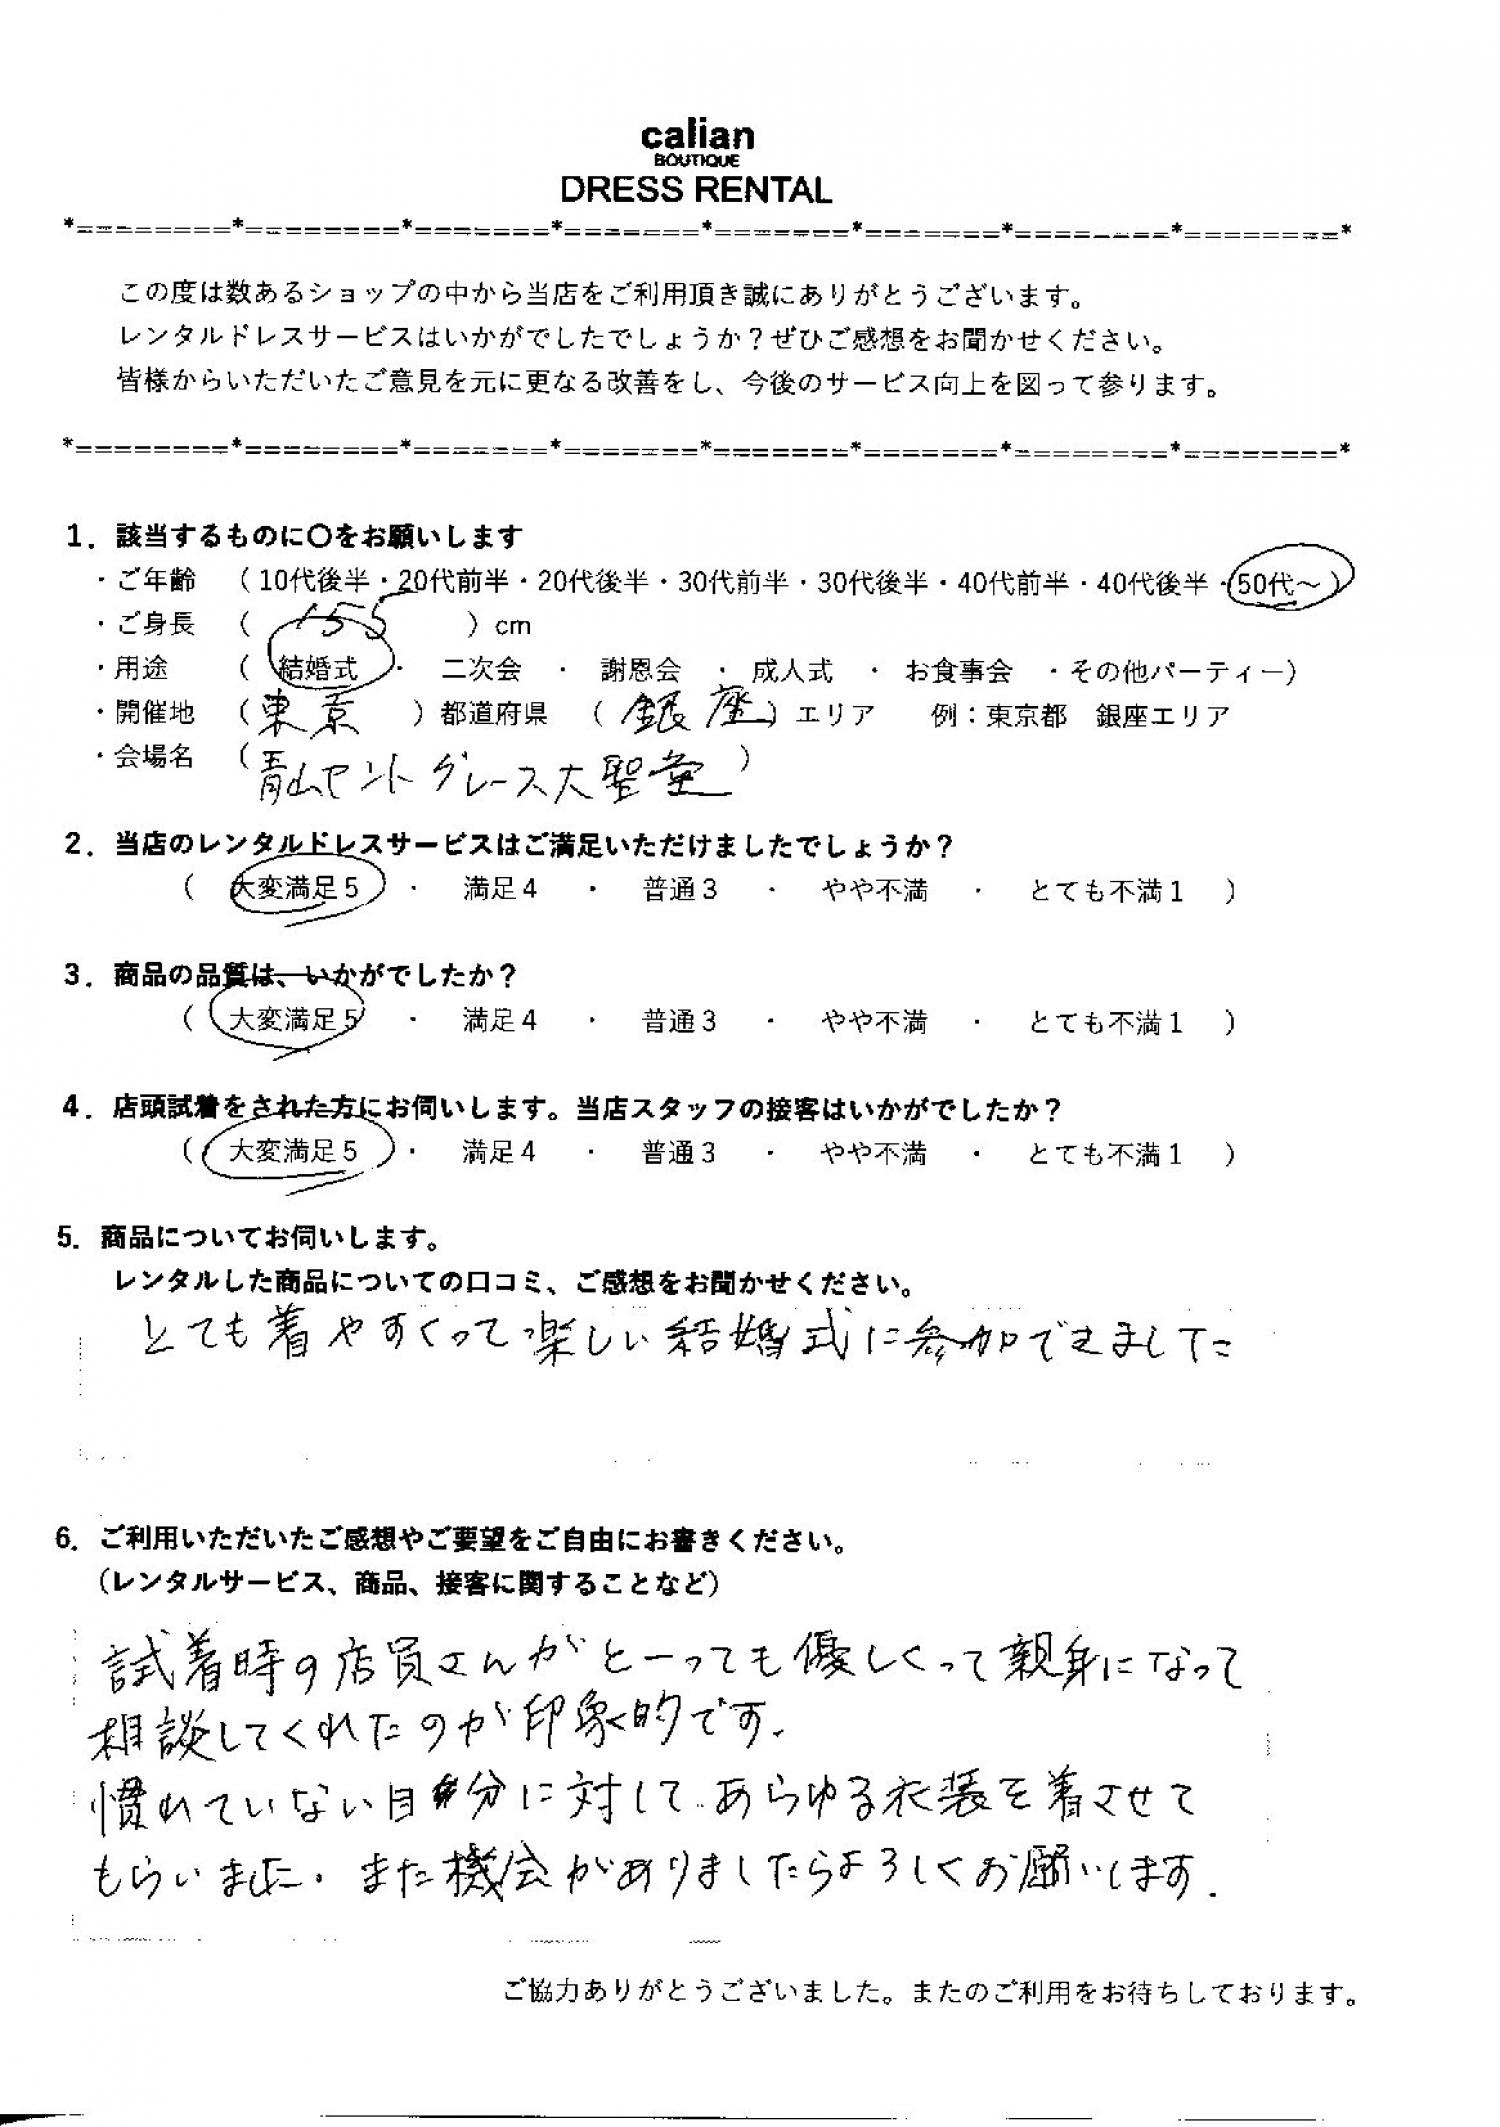 calian
BOUTIQUE
DRESS RENTAL
*========*========*=======*=======*=======*=======*========*========*
この度は数あるショップの中から当店をご利用頂き誠にありがとうございます。
レンタルドレスサービスはいかがでしたでしょうか？ぜひご感想をお聞かせください。
皆様からいただいたご意見を元に更なる改善をし、今後のサービス向上を図って参ります。
*========*========*=======*=======*=======*=======*========*========*
1．該当するものに〇をお願いします
・ご年齢 （10代後半・20代前半・20代後半・30代前半・30代後半・40代前半・40代後半・50代～）
・ご身長 （ 155 ）cm
・用途 （ 結婚式 ・ 二次会 ・ 謝恩会 ・ 成人式 ・ お食事会 ・その他パーティー）
・開催地 （ 東京 ）都道府県 （ 銀座 ）エリア 例：東京都 銀座エリア
・会場名 （ 青山セントグレース大聖堂 ）
2．当店のレンタルドレスサービスはご満足いただけましたでしょうか？
（ 大変満足5 ・ 満足4 ・ 普通3 ・ やや不満 ・ とても不満1 ）
3．商品の品質は、いかがでしたか？
（ 大変満足5 ・ 満足4 ・ 普通3 ・ やや不満 ・ とても不満1 ）
4．店頭試着をされた方にお伺いします。当店スタッフの接客はいかがでしたか？
（ 大変満足5 ・ 満足4 ・ 普通3 ・ やや不満 ・ とても不満1 ）
5．商品についてお伺いします。
レンタルした商品についての口コミ、ご感想をお聞かせください。
とても着やすくって楽しい結婚式に参加できました
6．ご利用いただいたご感想やご要望をご自由にお書きください。
（レンタルサービス、商品、接客に関することなど）
試着時の店員さんがとーっても優しくって親身になって
相談してくれたのが印象的です.
慣れていない自分に対して あらゆる衣装を着させて
もらいました. また機会がありましたらよろしくお願いします.
ご協力ありがとうございました。またのご利用をお待ちしております。